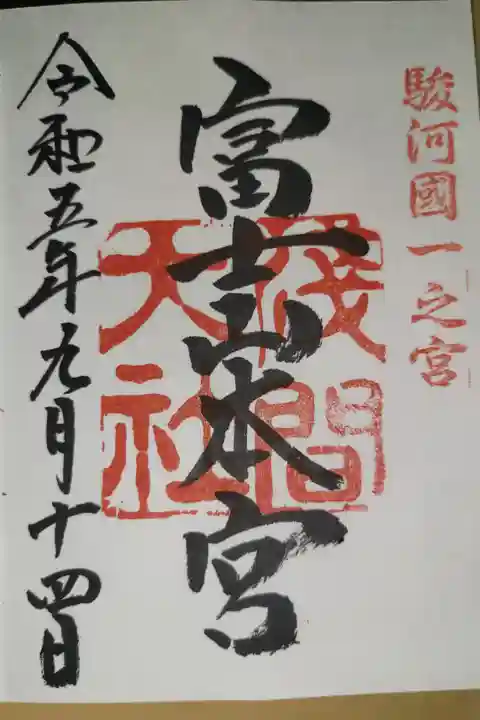 駿河國一之宮
富士山本宮
浅間
大社
令和五年九月十四日